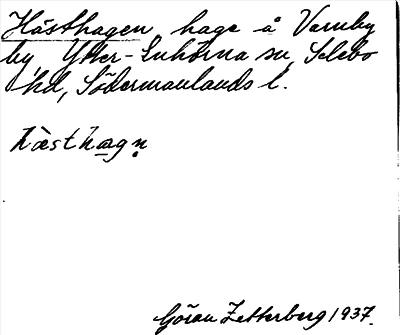 Hästhagen hage å Varnby
by Ytter-Enhörna sn, Selebo
hd, Södermanlands l.
hæ̀sthagn̥
Göran Zetterberg 1937.